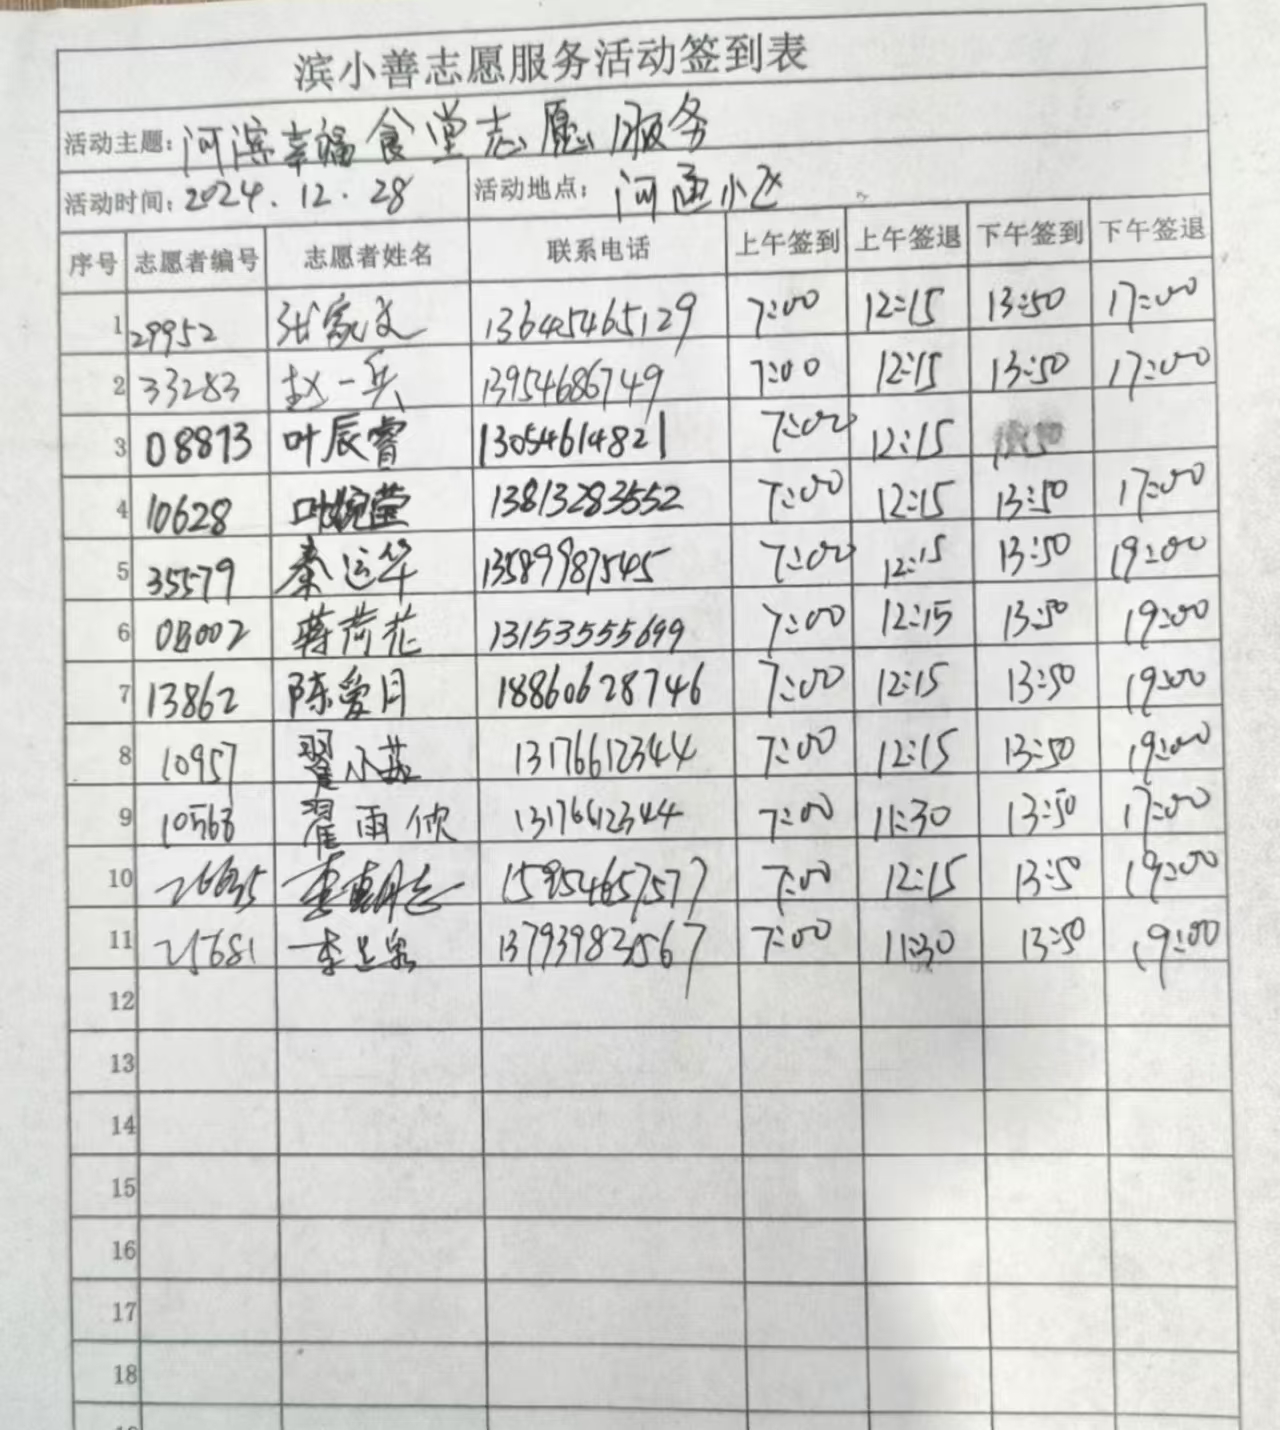 滨小善志愿服务活动签到表
活动主题: 河滨幸福食堂志愿服务
活动时间: 2024.12.28 活动地点: 河通小区
序号 志愿者编号 志愿者姓名 联系电话 上午签到 上午签退 下午签到 下午签退
1 29952 张家文 13645465129 7:00 12:15 13:50 17:00
2 33283 赵一兵 13954686749 7:00 12:15 13:50 17:00
3 08893 叶辰睿 13054614821 7:00 12:15
4 10628 叶婉莹 13813283552 7:00 12:15 13:50 17:00
5 35579 秦运华 13589987545 7:00 12:15 13:50 19:00
6 蒋荷花 13153555699 7:00 12:15 13:50 19:00
7 13862 陈爱月 18860628746 7:00 12:15 13:50 19:00
8 10957 翟小茹 13176612344 7:00 12:15 13:50 19:00
9 10568 翟雨欣 13176612344 7:00 11:30 13:50 17:00
10 15954657577 7:00 12:15 13:50 19:00
11 25681 13793983567 7:00 11:30 13:50 19:00
12
13
14
15
16
17
18